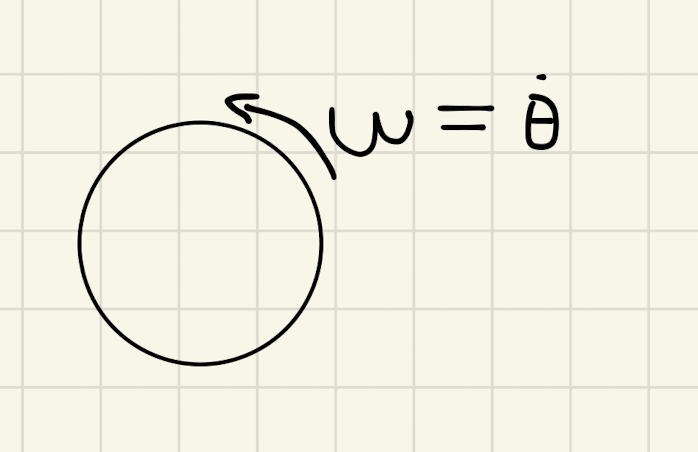 ω = θ̇